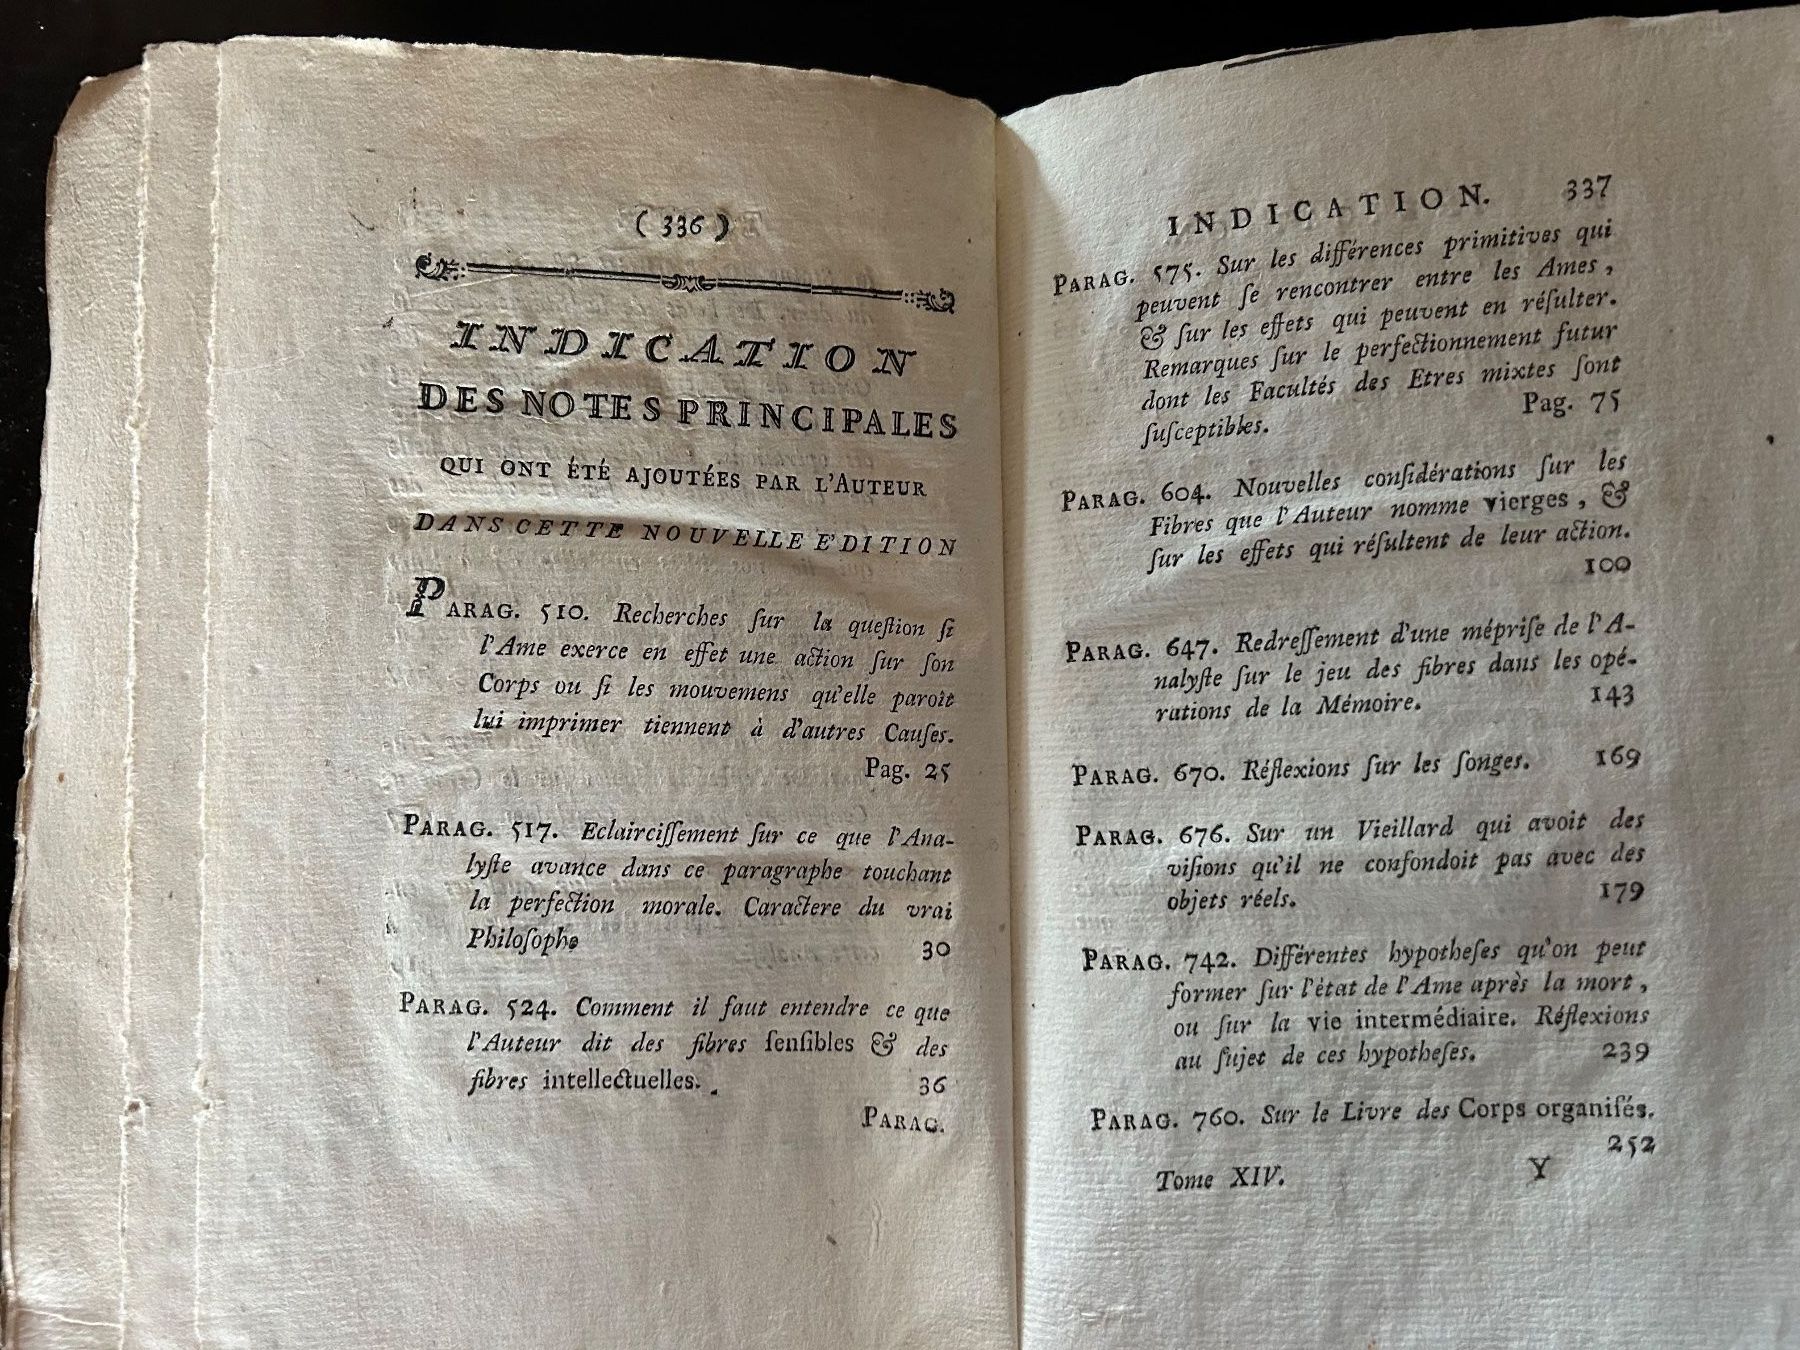 ( 336 )
INDICATION
DES NOTES PRINCIPALES
QUI ONT ÉTÉ AJOUTÉES PAR L'AUTEUR
DANS CETTE NOUVELLE E'DITION
PARAG. 510. Recherches ſur la queſtion ſi
l'Ame exerce en effet une action ſur ſon
Corps ou ſi les mouvemens qu'elle paroît
lui imprimer tiennent à d'autres Cauſes.
Pag. 25
PARAG. 517. Eclairciſſement ſur ce que l'Ana-
lyſte avance dans ce paragraphe touchant
la perfection morale. Caractere du vrai
Philoſophe 30
PARAG. 524. Comment il faut entendre ce que
l'Auteur dit des fibres ſenſibles & des
fibres intellectuelles. 36
PARAG.
INDICATION. 337
PARAG. 575. Sur les différences primitives qui
peuvent ſe rencontrer entre les Ames,
& ſur les effets qui peuvent en réſulter.
Remarques ſur le perfectionnement futur
dont les Facultés des Etres mixtes ſont
ſuſceptibles. Pag. 75
PARAG. 604. Nouvelles conſidérations ſur les
Fibres que l'Auteur nomme vierges, &
ſur les effets qui réſultent de leur action.
100
PARAG. 647. Redreſſement d'une mépriſe de l'A-
nalyſte ſur le jeu des fibres dans les opé-
rations de la Mémoire. 143
PARAG. 670. Réflexions ſur les ſonges. 169
PARAG. 676. Sur un Vieillard qui avoit des
viſions qu'il ne confondoit pas avec des
objets réels. 179
PARAG. 742. Différentes hypotheſes qu'on peut
former ſur l'état de l'Ame après la mort,
ou ſur la vie intermédiaire. Réflexions
au ſujet de ces hypotheſes. 239
PARAG. 760. Sur le Livre des Corps organiſés.
252
Tome XIV. Y